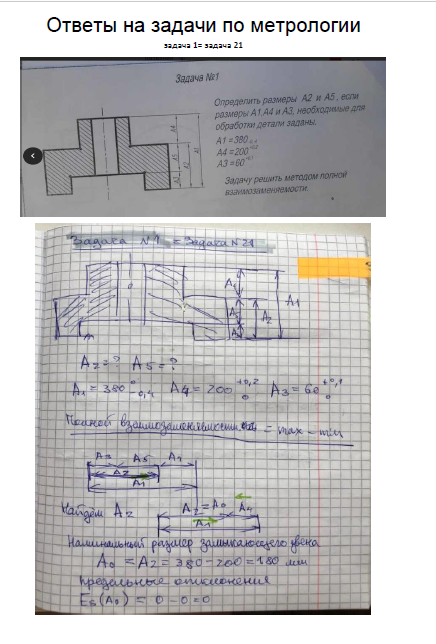 Ответы на задачи по метрологии
задача 1= задача 21
Задача №1
Определить размеры А2 и А5, если
размеры А1,А4 и А3, необходимые для
обработки детали заданы.
А1 =380-0,4
А4 =200+0,2
А3 =60+0,1
Задачу решить методом полной
взаимозаменяемости.
А4
А5
А1
А3
А2
Задача №1 = Задача №21
А4
А1
А2
А2 = ? А5 = ?
А1 = 380 0 -0,4 А4 = 200 +0,2 0 А3 = 60 +0,1 0
Полной взаимозаменяемости = max - min
А3 А5 А4
А2
А1
Найдём А2
А2 = А0 А4
А1
Номинальный размер замыкающего звена
А0 = А2 = 380 - 200 = 180 мм
предельные отклонения
Es(A0) = 0 - 0 = 0